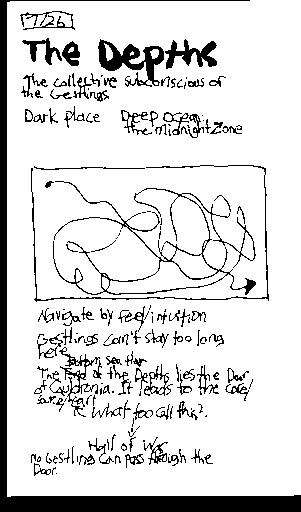 7/26
The Depths
The collective subconscious of
the Gestlings.
Dark place Deep ocean.
the midnight Zone
Navigate by feel/intuition
Gestlings can't stay too long
here.
bottom, sea floor
The Floor of the Depths lies the Door
of Cauldronia. It leads to the core/
source/heart
what too call this?
Hall of
No Gestling can pass through the
Door.